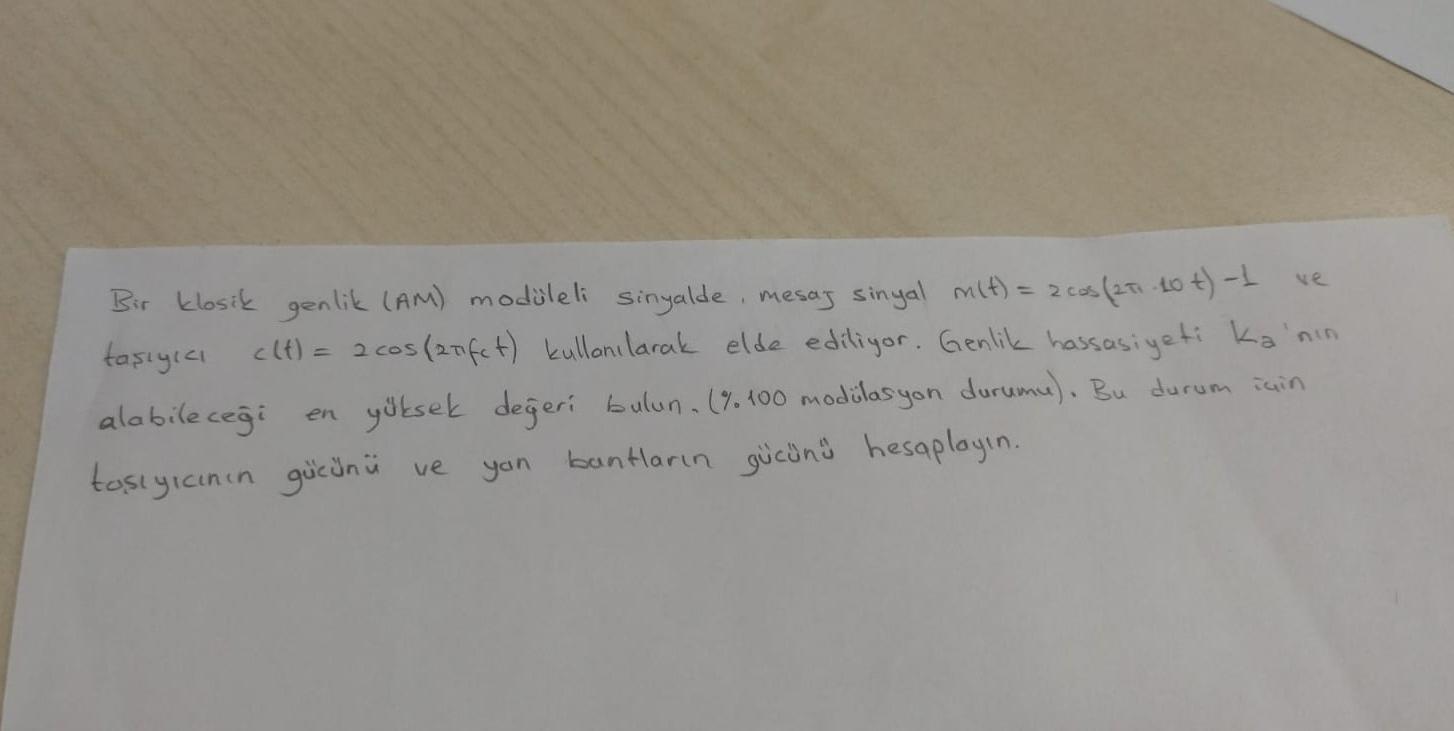 Bir klasik genlik (AM) modüleli sinyalde, mesaj sinyal m(t) = 2 cos(2π.10t) -1 ve
taşıyıcı c(t) = 2 cos(2πfct) kullanılarak elde ediliyor. Genlik hassasiyeti ka'nın
alabileceği en yüksek değeri bulun. (%100 modülasyon durumu). Bu durum için
taşıyıcının gücünü ve yan bantların gücünü hesaplayın.